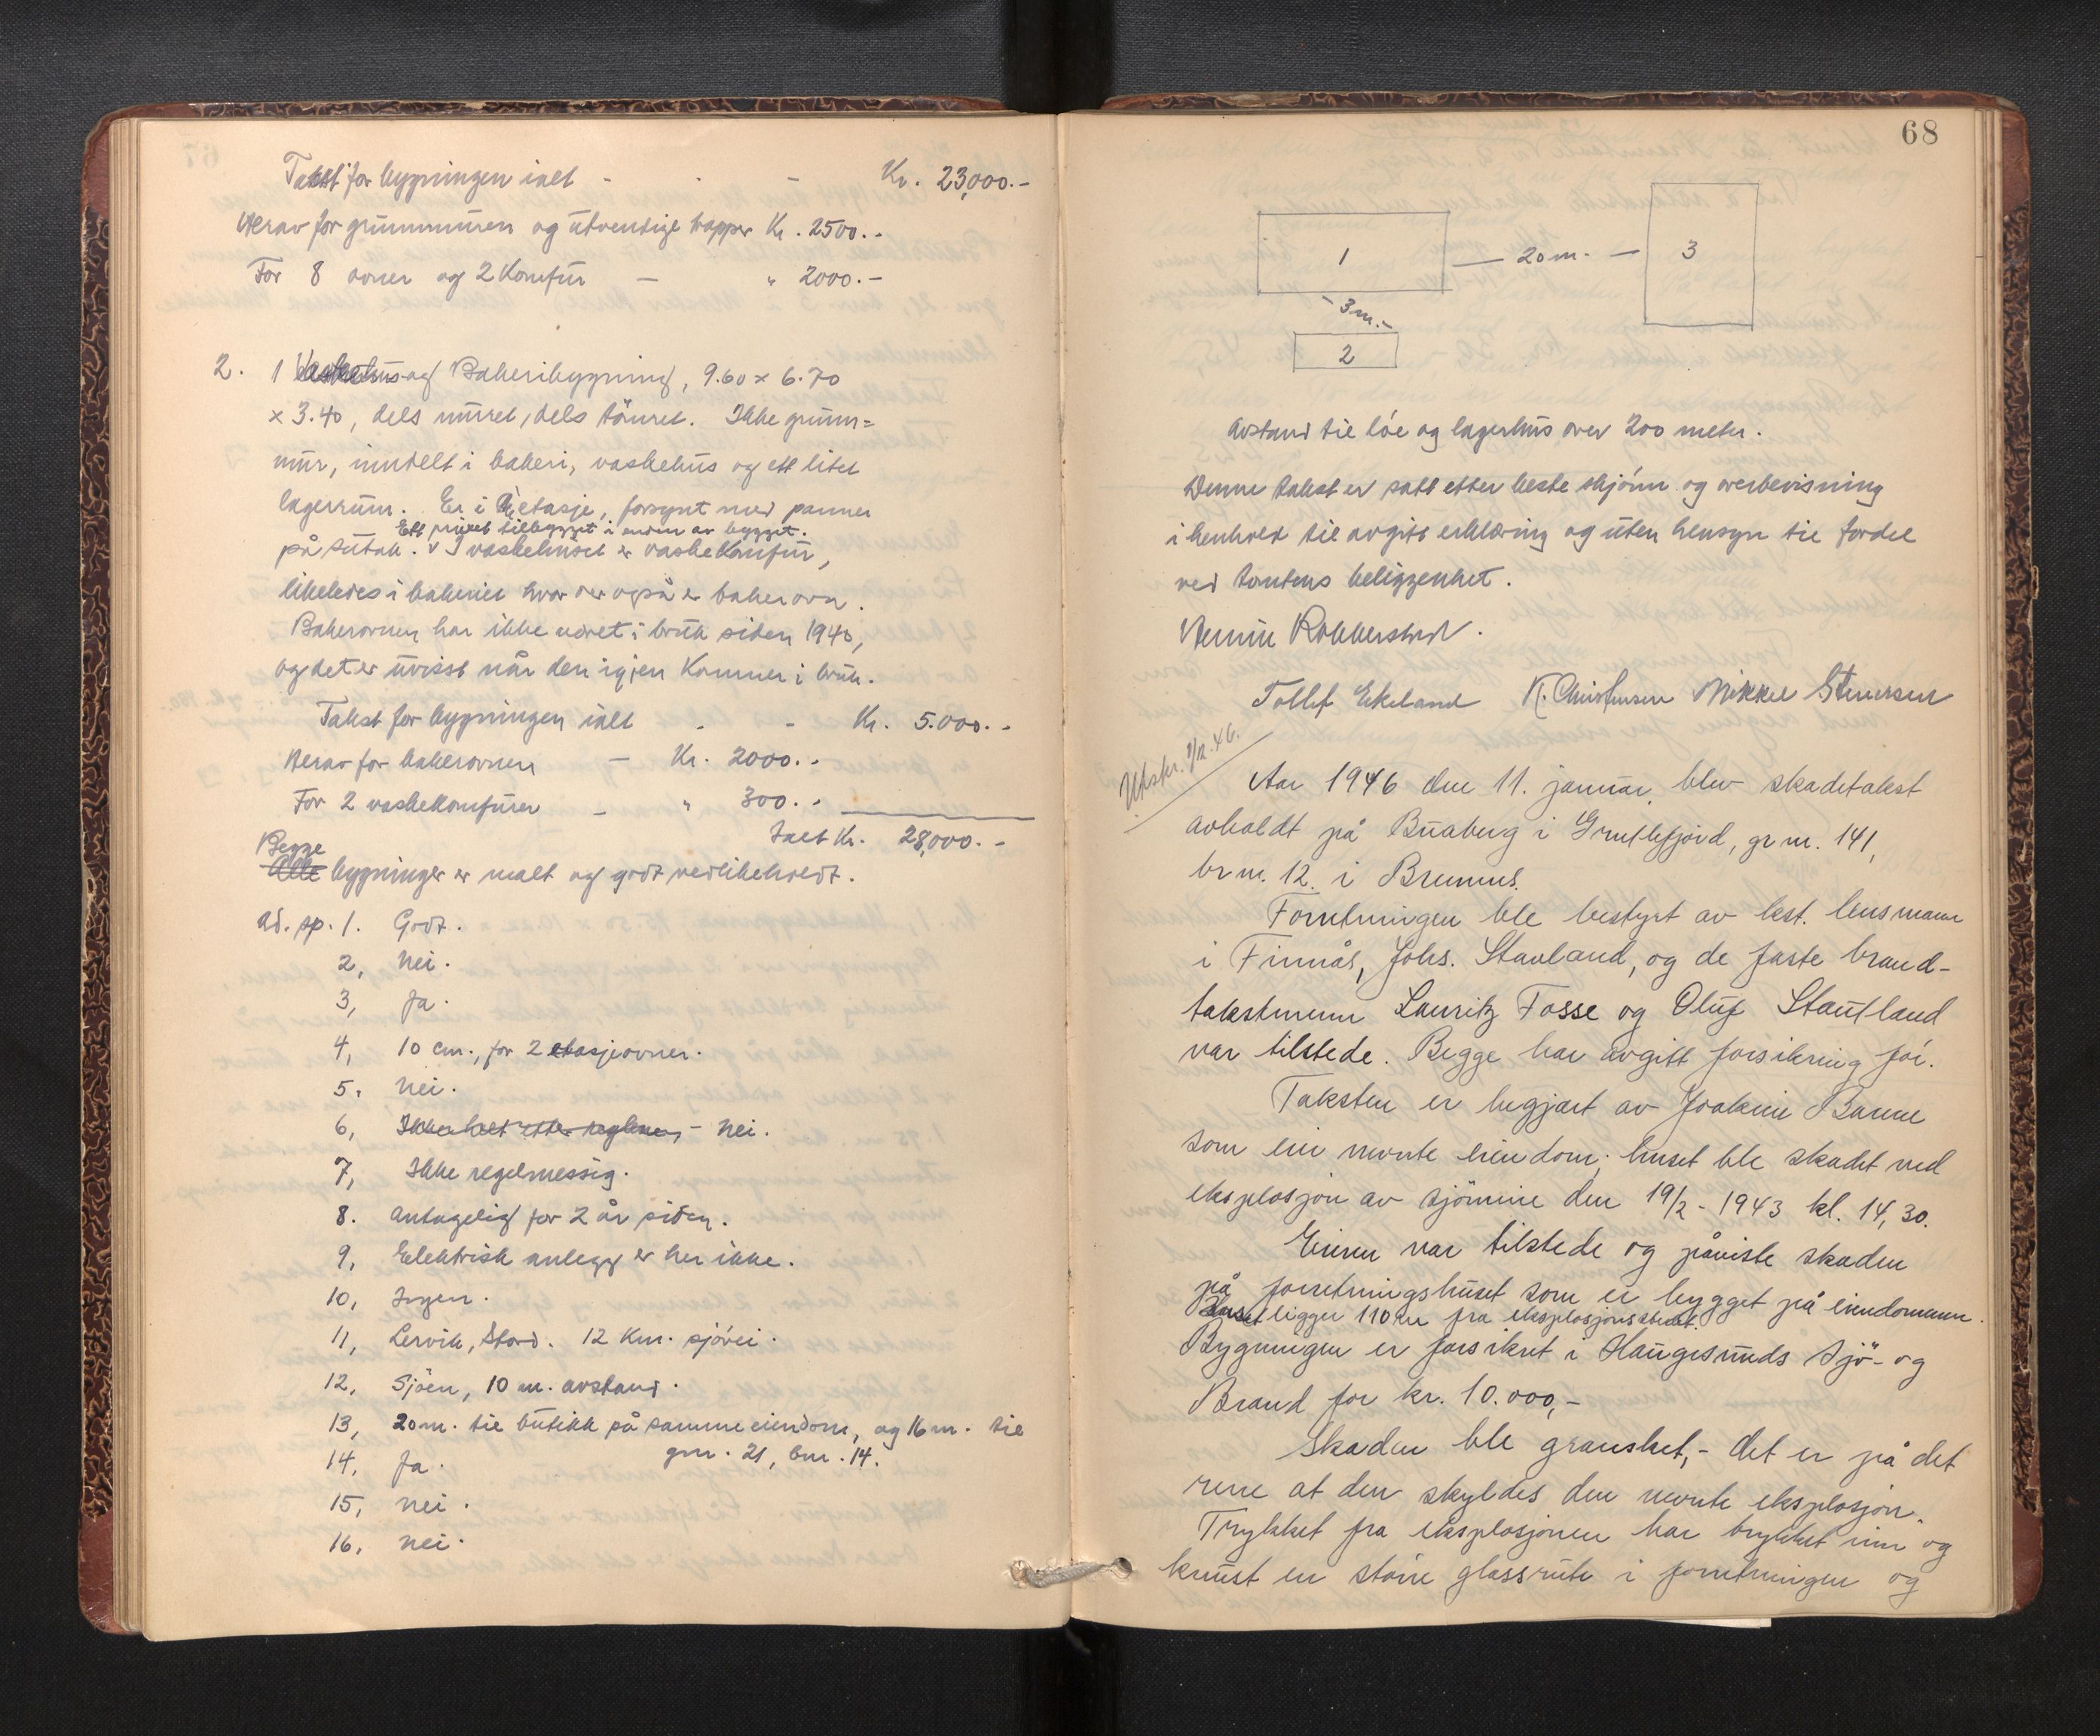 Takst for bygningen ialt - - - Kr. 23,000.-
Herav for grunnmuren og utvendige trapper Kr. 2500.-
For 8 ovner og 2 Komfür - " 2000.-
2. 1 Vaskehus og Bakeribygning, 9.60 x 6.70
x 3.40, dels muret, dels tömret. Ikke grunn=
mur, inndelt i bakeri, vaskehus og ett litet
lagerrum. Er i 1 etasje, forsynt med panner
Ett privet tilbygget i enden av bygget.
på sutak. v I vaskehuset er vaskekomfür,
likeledes i bakeriet hvor der også er bakerovn.
Bakerovnen har ikke været i bruk siden 1940,
og det er uvisst når den igjen kommer i bruk.
Takst for bygningen ialt - - Kr. 5.000.-
Herav for bakerovnen - Kr. 2000.-
For 2 vaskekomfürer - " 300.-
Ialt Kr. 28,000.-
Begge
Alle bygninger er malt og godt vedlikeholdt.
ad. sp. 1. Godt.
2, Nei.
3, Ja.
4, 10 cm., for 2 etasjeovner.
5. Nei.
6, - Nei.
7, Ikke regelmessig.
8. Antagelig for 2 år siden.
9, Elektrisk anlegg er her ikke.
10, Ingen.
11, Lervik, Stord. 12 Km. sjövei.
12, Sjöen, 10 m. avstand.
13, 20 m. til butikk på samme eiendom, og 16 m. til
gnr. 21, bnr. 14.
14, Ja.
15, Nei.
16, Nei.
68
1 — 20 m. — 3
- 3 m. -
2
Avstand til löe og lagerhus over 200 meter.
Denne takst er satt etter beste skjönn og overbevisning
i henhold til avgitt erklæring og uten hensyn til fordel
ved tomtens beliggenhet.
Tollef Ekeland K. Christensen Mikkel Stenersen
Utskr. 7/12.46.
Aar 1946 den 11. januar, blev skadetakst
avholdt på Buaberg i Gruttefjord, gr nr. 141,
br nr. 12. i Bremnes.
Forretningen ble bestyrt av kst. lensmann
i Finnås, Johs. Stavland, og de faste brand-
takstmenn Lauritz Fosse og Oluf Stautland
var tilstede. Begge har avgitt forsikring för.
Taksten er begjært av Joakim Banne
som eier nevnte eiendom; huset ble skadet ved
eksplosjon av sjömine den 19/2 - 1943 kl. 14,30.
Eieren var tilstede og påviste skaden
på forretningshuset som er bygget på eiendommen.
Huset ligger 110 m fra eksplosjonsstedet.
Bygningen er forsikret i Haugesunds Sjö- og
Brand for kr. 10.000,-
Skaden ble gransket, - det er på det
rene at den skyldes den nevnte eksplosjon.
Trykket fra eksplosjonen har trykket inn og
knust en större glassrute i forretningen og